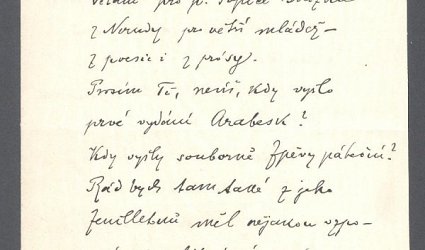 pro p.
z Nerudy pro větší mládež –
z poesie i z prósy.
Prosím Tě, nevíš, kdy vyšlo
prvé vydání Arabesk?
Kdy vyšly souborně Zpěvy páteční?
Rád bych tam také z jeho
feuilletonů měl nějakou vzpo-